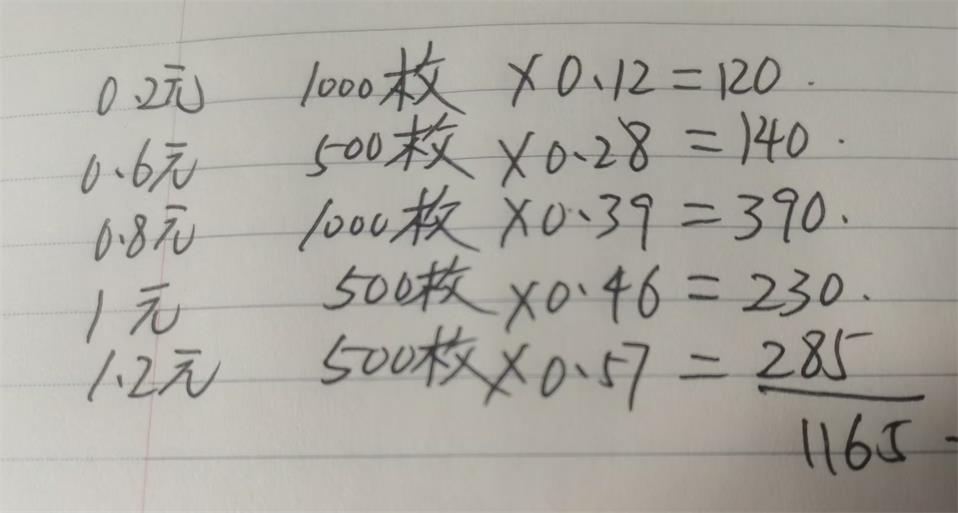 0.2元 1000枚 ×0.12=120.
0.6元 500枚 ×0.28=140.
0.8元 1000枚 ×0.39=390.
1元 500枚 ×0.46=230.
1.2元 500枚 ×0.57=285
1165-